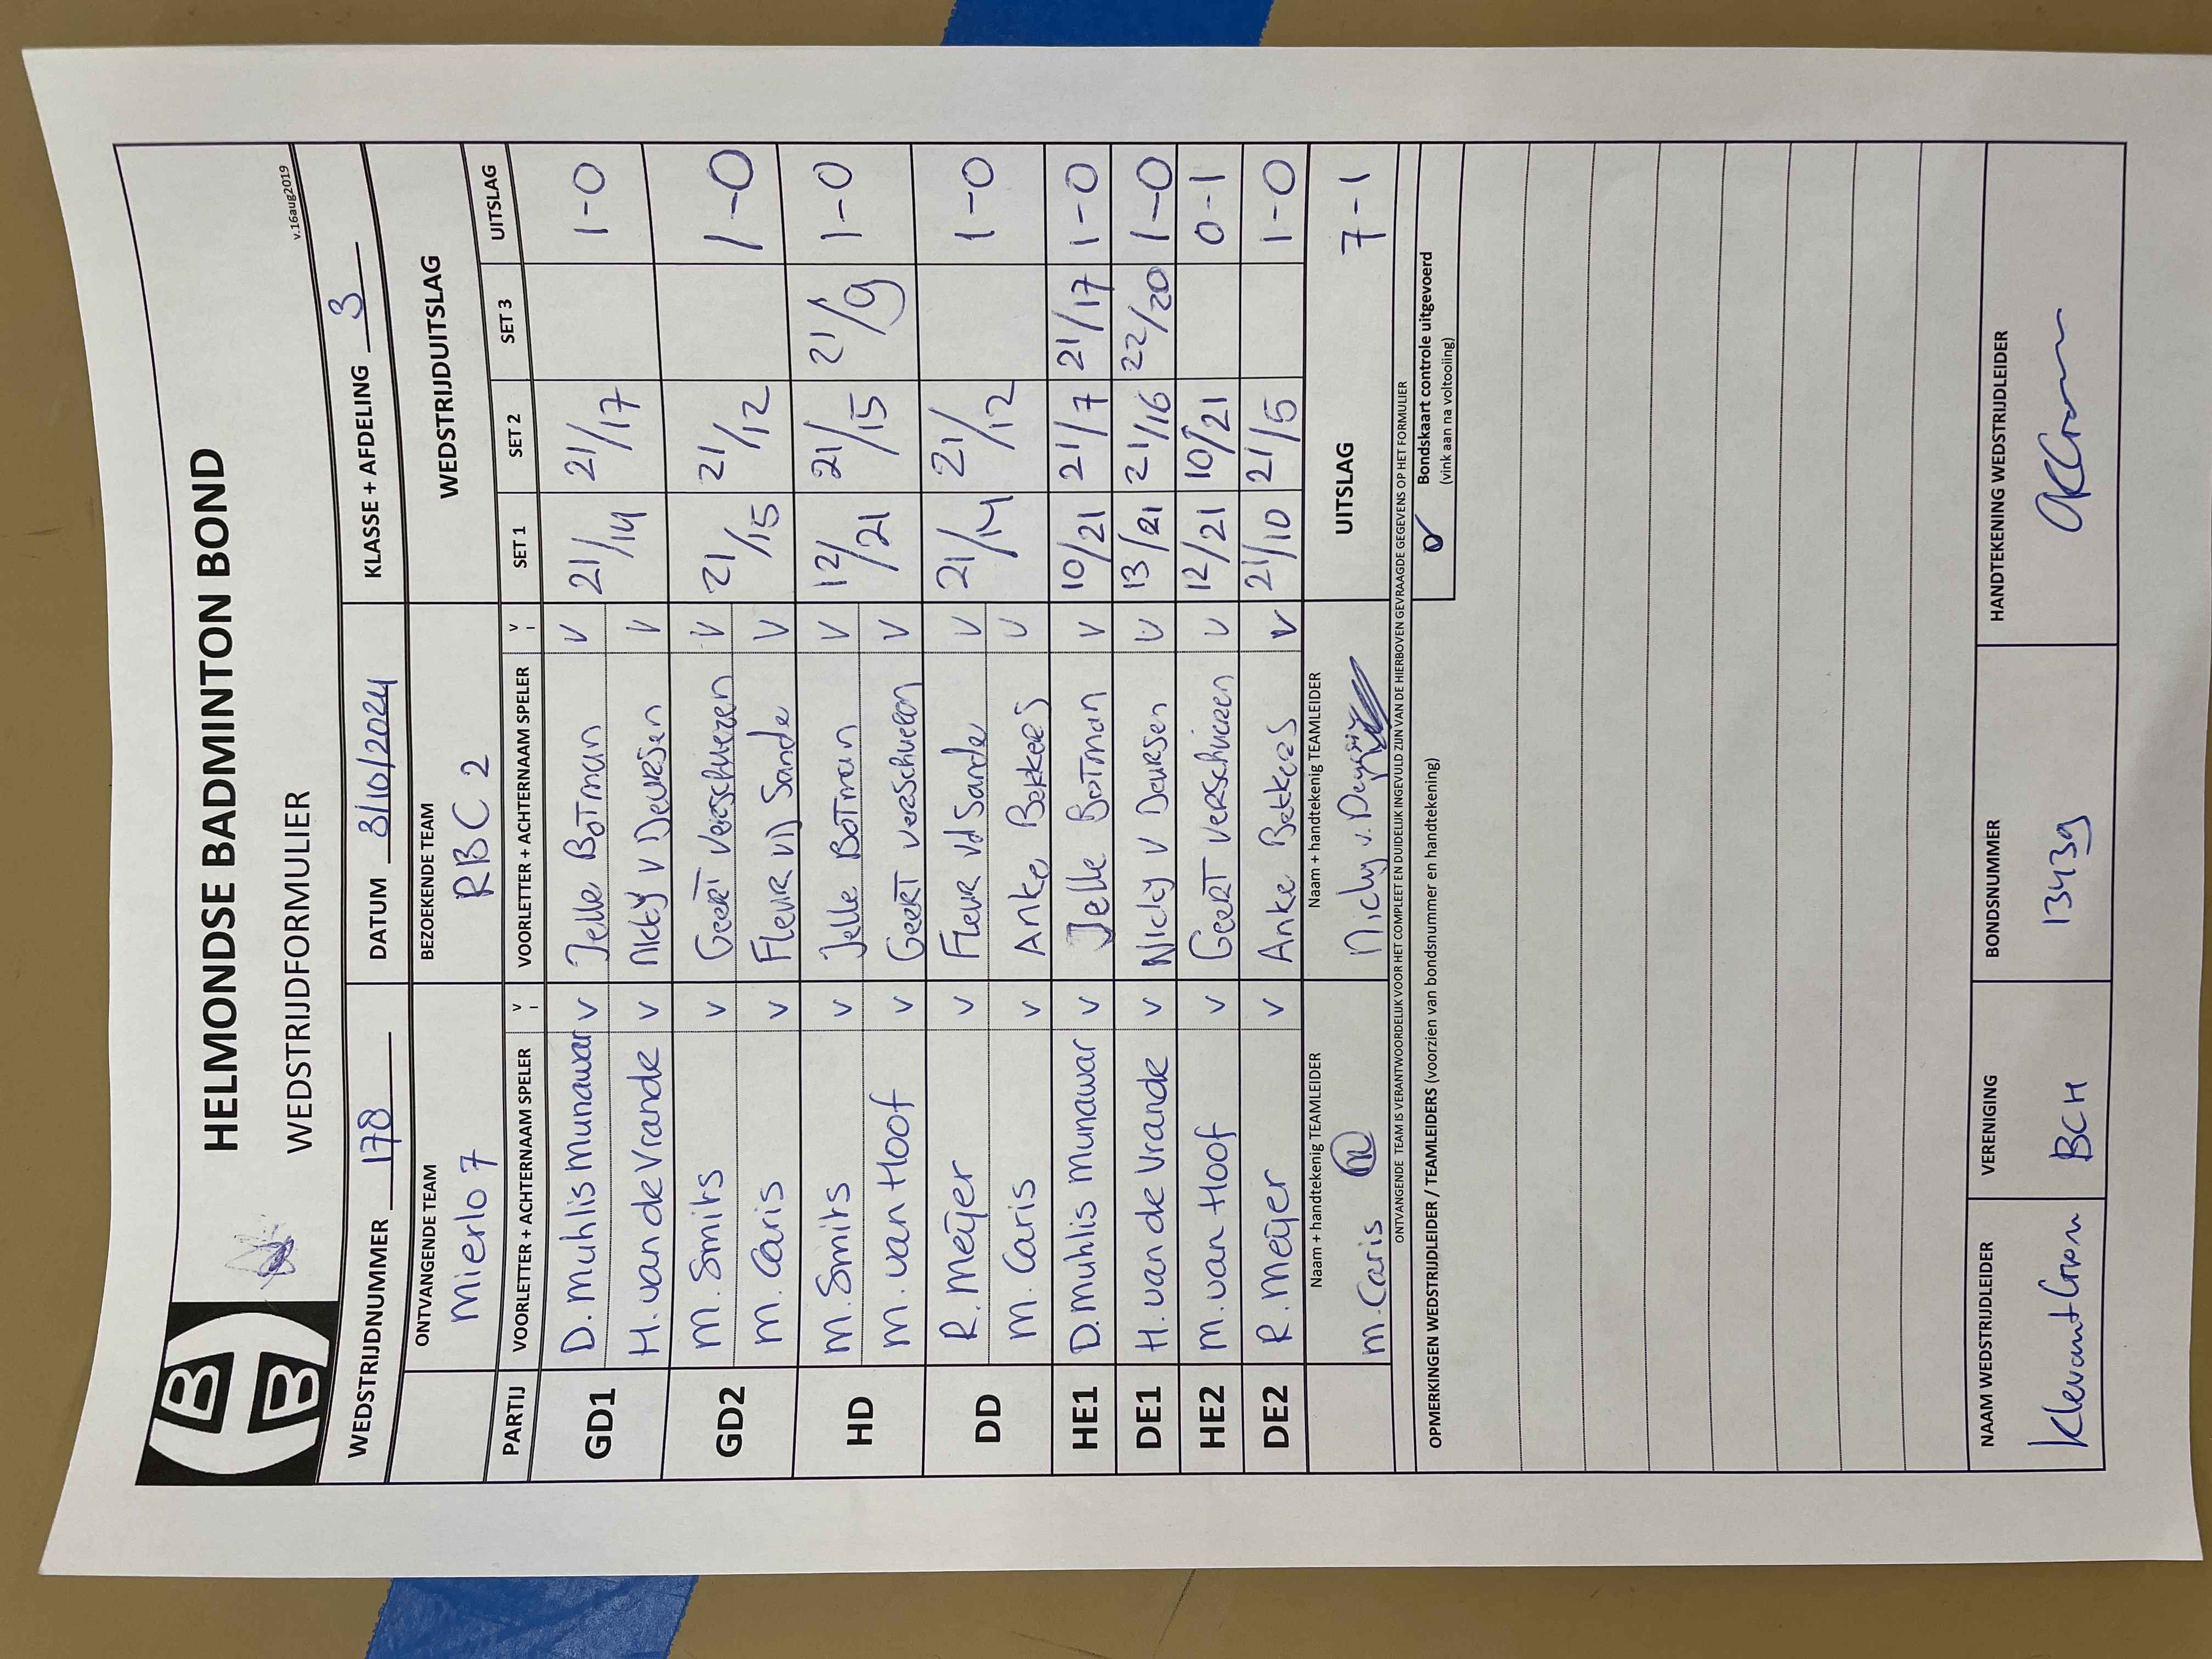 HELMONDSE BADMINTON BOND
WEDSTRIJDFORMULIER
v.16aug2019
WEDSTRIJDNUMMER 178 DATUM 3/10/2024 KLASSE + AFDELING 3
ONTVANGENDE TEAM BEZOEKENDE TEAM WEDSTRIJDUITSLAG
Mierlo 7 RBC 2
PARTIJ VOORLETTER + ACHTERNAAM SPELER V VOORLETTER + ACHTERNAAM SPELER V SET 1 SET 2 SET 3 UITSLAG
GD1 D. Muhlis Munawar V Jelle Botman V 21/14 21/17 1-0
H. van de Vrande V Nicky v Deursen V
GD2 M. Smits V Geert Verschueren V 21/15 21/12 1-0
M. Caris V Fleur vd Sande V
HD M. Smits V Jelle Botman V 12/21 21/15 21/9 1-0
M. van Hoof V Geert Verschueren V
DD R. Meijer V Fleur vd Sande V 21/14 21/12 1-0
M. Caris V Anke Bekkers V
HE1 D. Muhlis Munawar V Jelle Botman V 10/21 21/7 21/17 1-0
DE1 H. van de Vrande V Nicky v Deursen V 13/21 21/16 22/20 1-0
HE2 M. van Hoof V Geert Verschueren V 12/21 10/21 0-1
DE2 R. Meijer V Anke Bekkers V 21/10 21/5 1-0
Naam + handtekenig TEAMLEIDER Naam + handtekenig TEAMLEIDER UITSLAG 7-1
M. Caris Nicky v.
ONTVANGENDE TEAM IS VERANTWOORDELIJK VOOR HET COMPLEET EN DUIDELIJK INGEVULD ZIJN VAN DE HIERBOVEN GEVRAAGDE GEGEVENS OP HET FORMULIER
OPMERKINGEN WEDSTRIJDLEIDER / TEAMLEIDERS (voorzien van bondsnummer en handtekening)
Bondskaart controle uitgevoerd
(vink aan na voltooiing)
NAAM WEDSTRIJDLEIDER VERENIGING BONDSNUMMER HANDTEKENING WEDSTRIJDLEIDER
BCH 13439